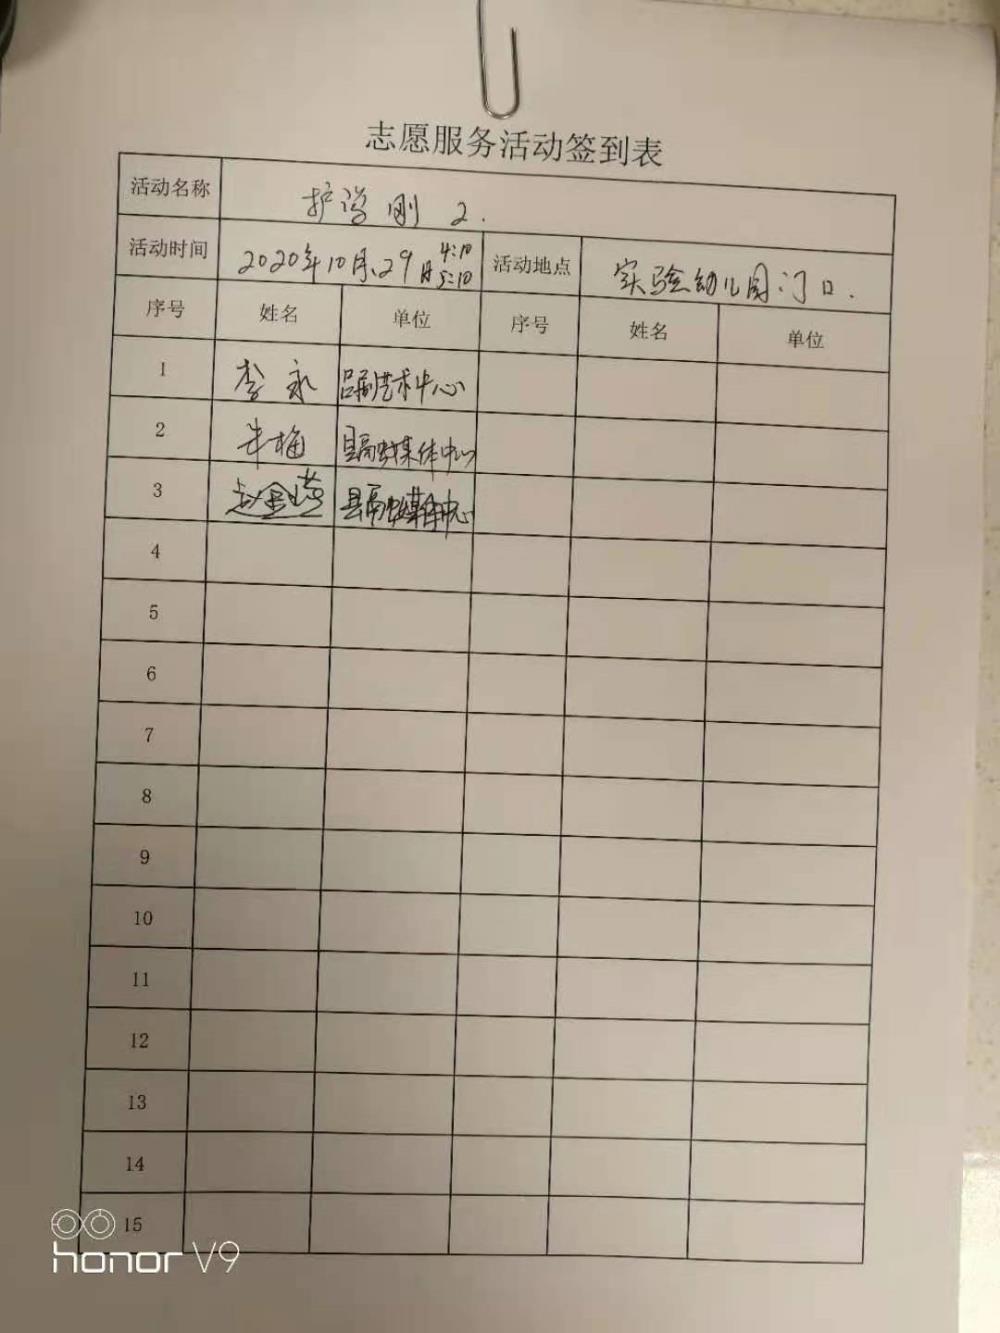 志愿服务活动签到表
活动名称 护学刚 2.
活动时间 2020年10月29日 4:10 5:10 活动地点 实验幼儿园门口.
序号 姓名 单位 序号 姓名 单位
1 李永 吕剧艺术中心
2 牛梅 县融媒体中心
3 赵金 县融媒体中心
4
5
6
7
8
9
10
11
12
13
14
15
honor V9